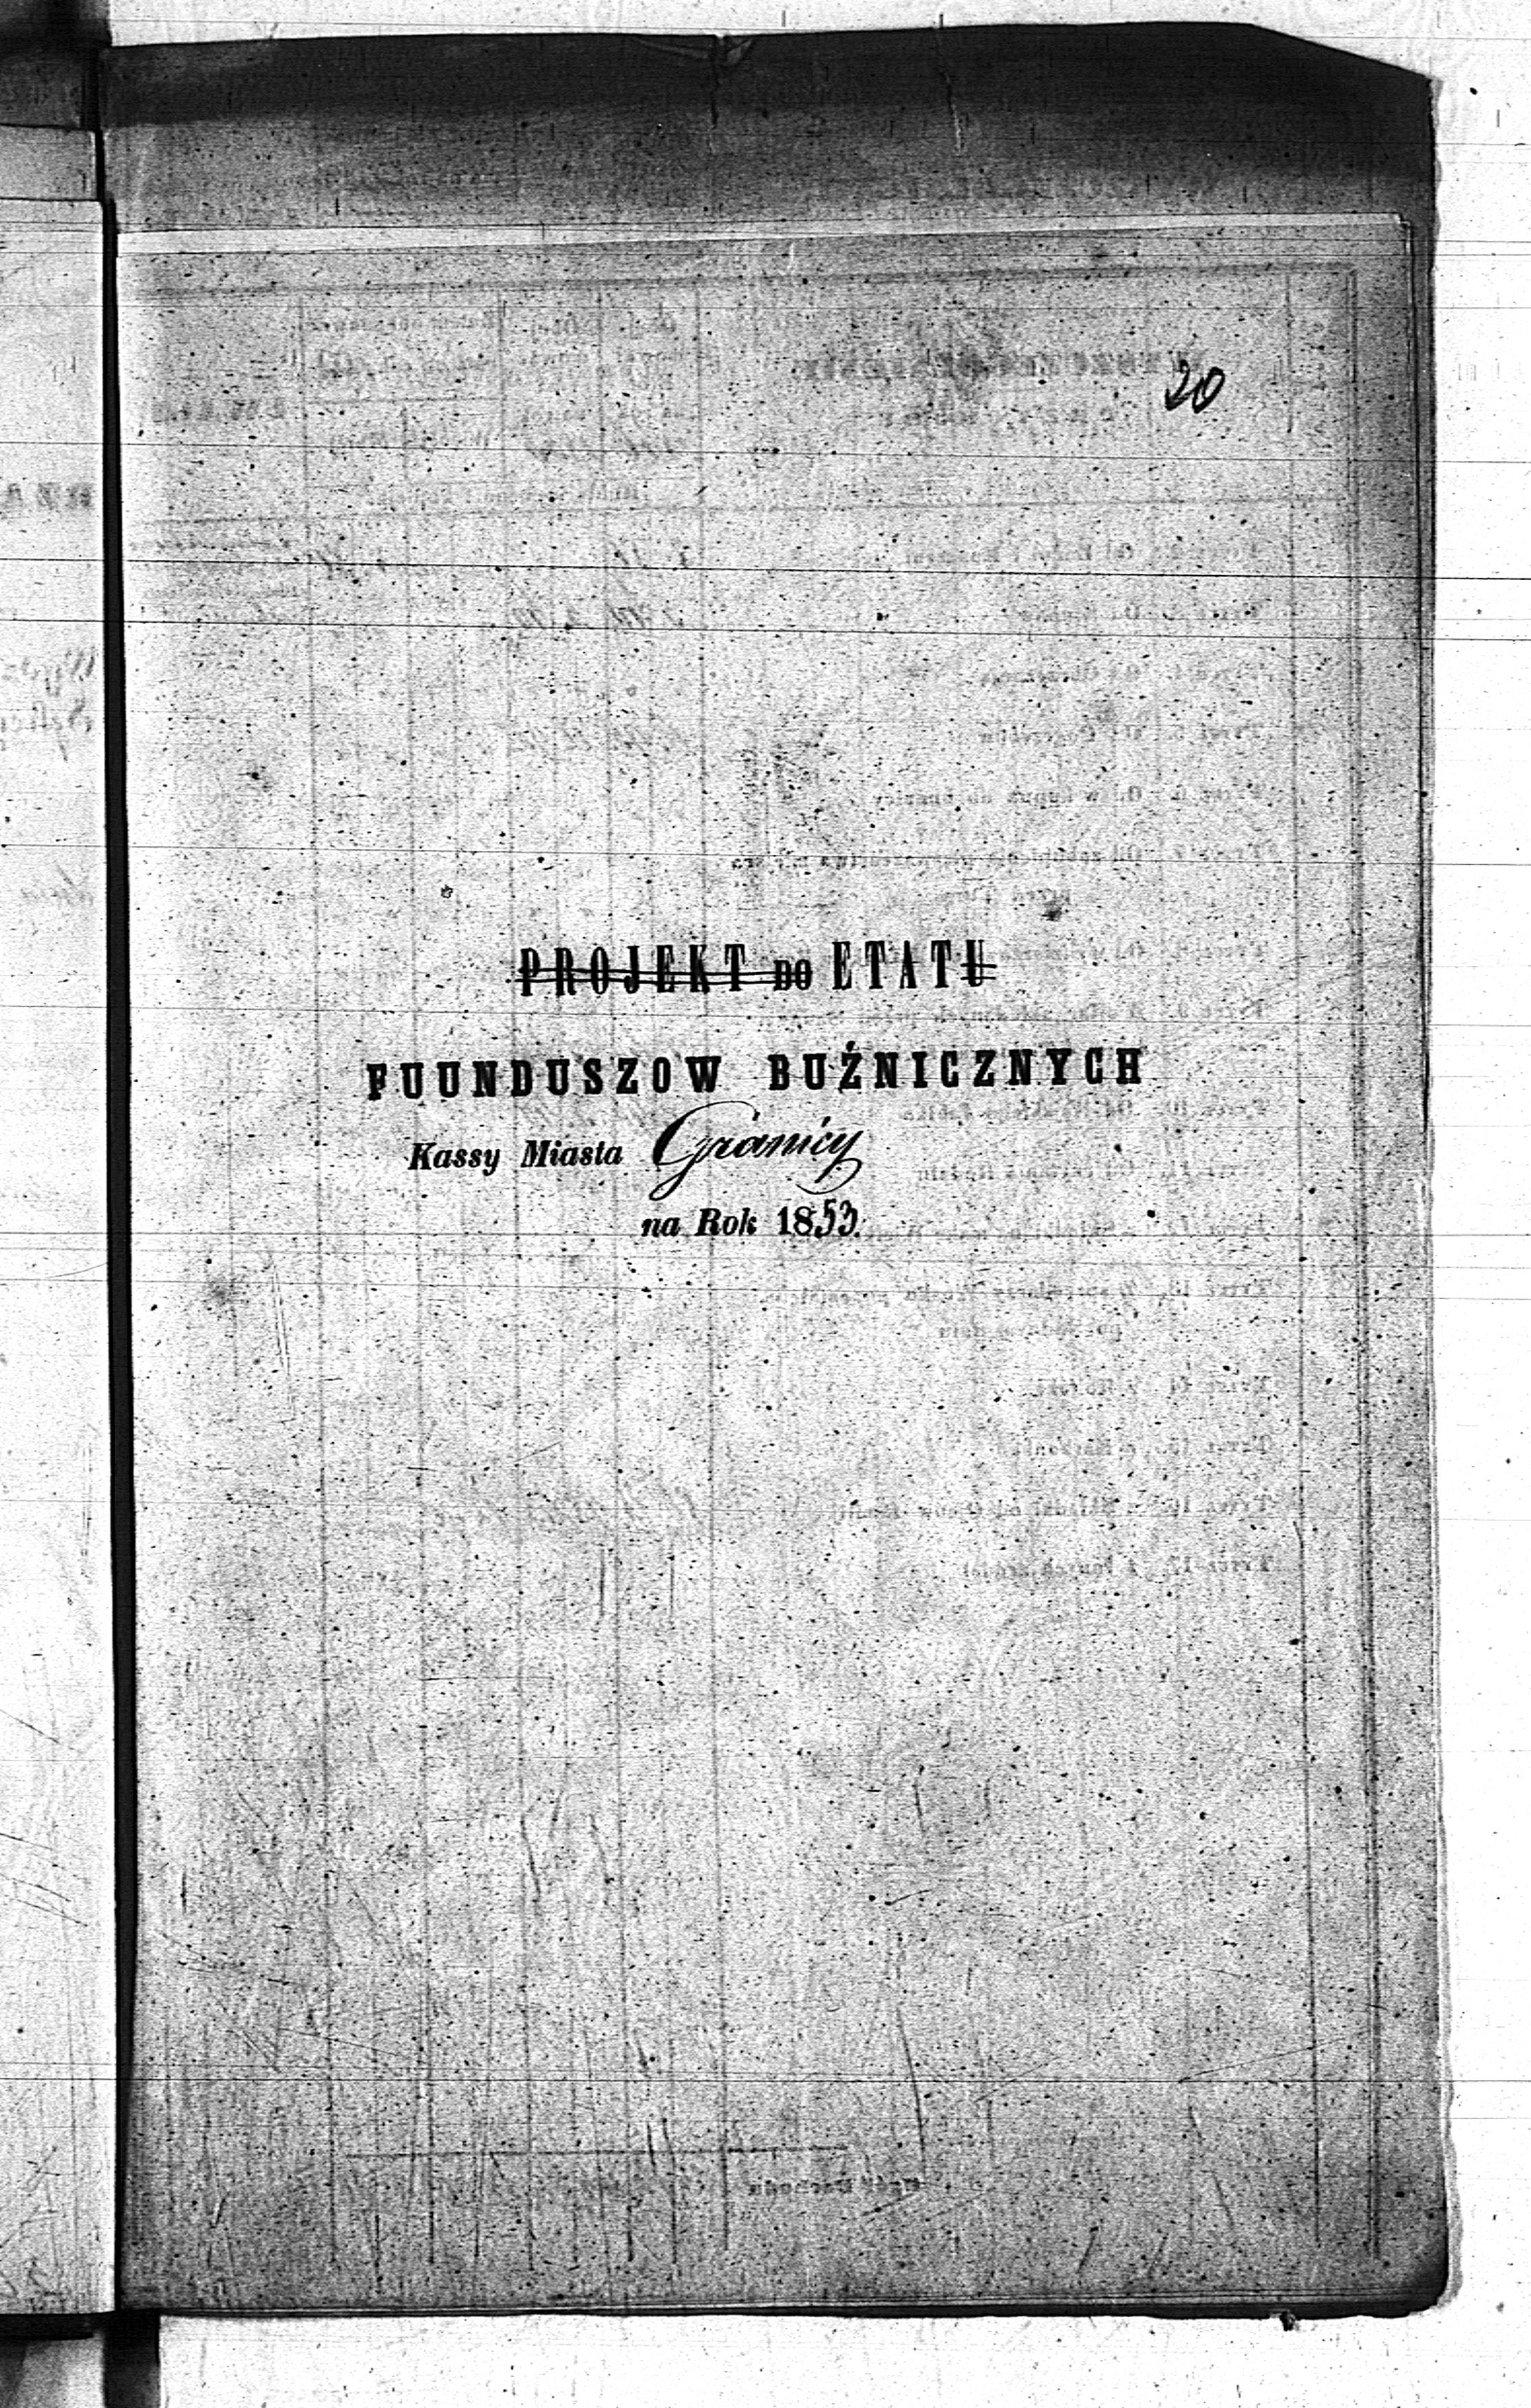 20
PROJEKT DO ETATU
FUUNDUSZOW BUŹNICZNYCH
Kassy Miasta Granicy
na Rok 1853.